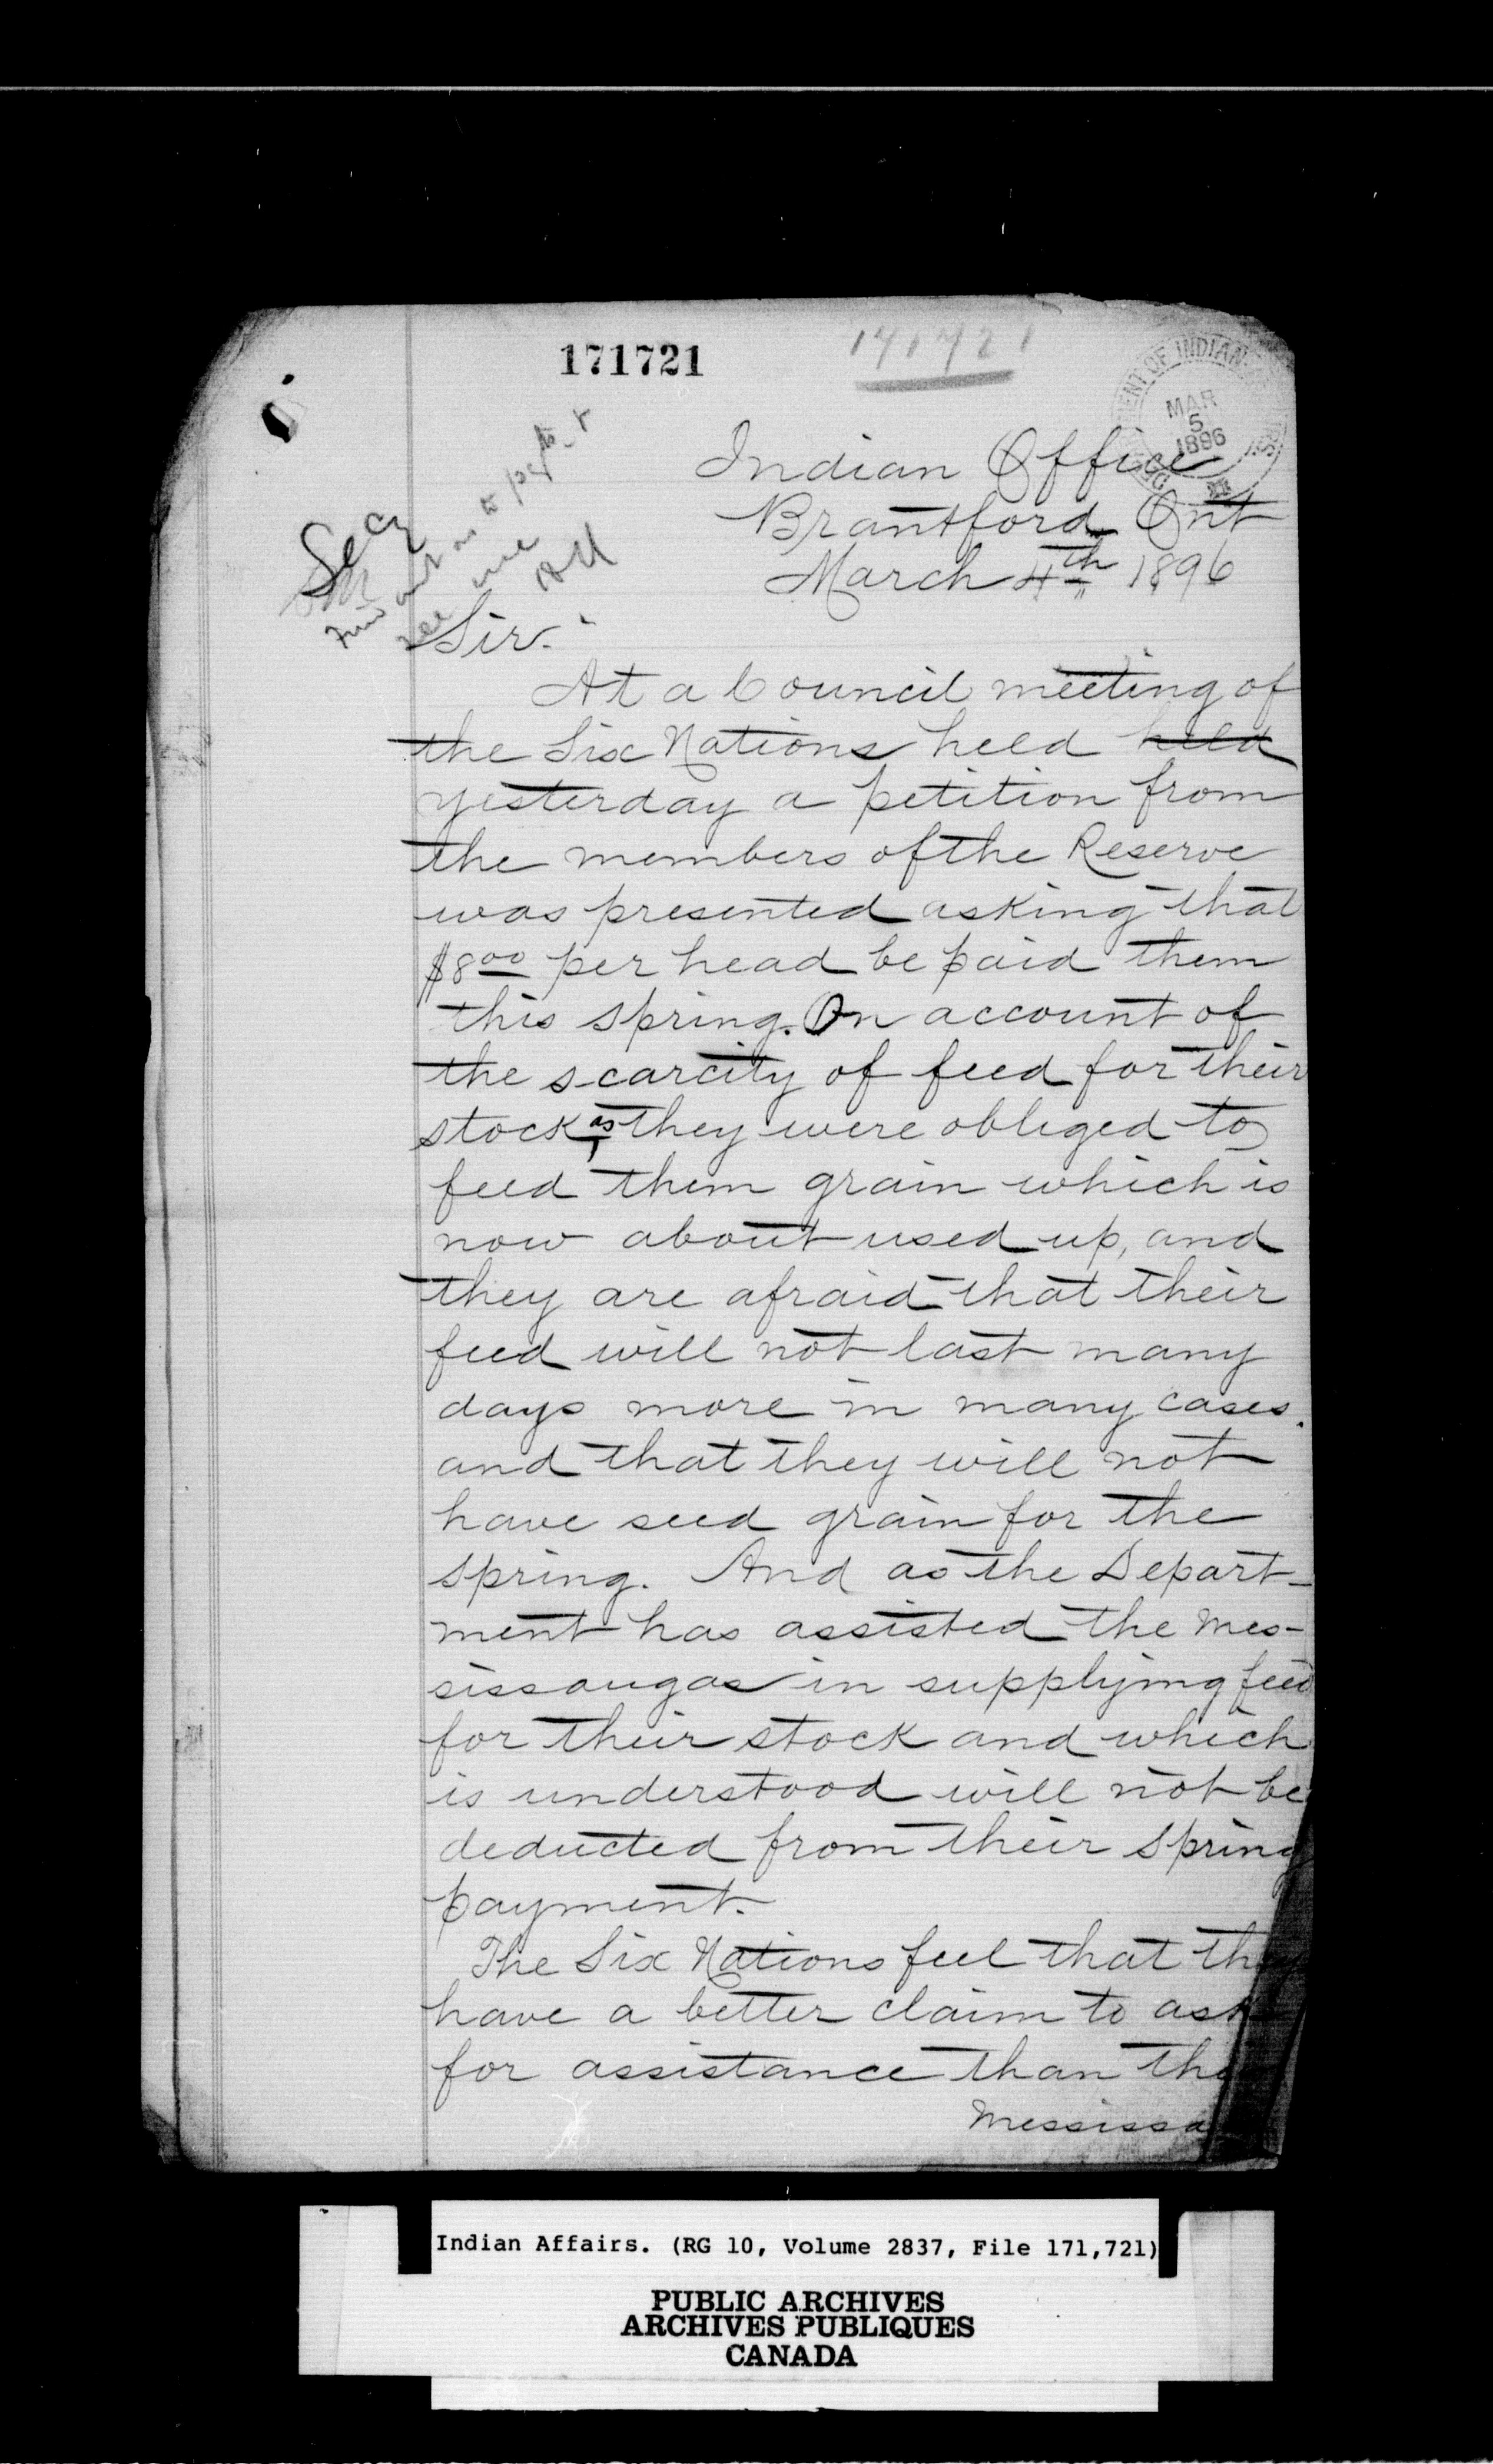 171721
171721
DEPARTMENT OF INDIAN AFFAIRS
MAR
5
1896
Secy
see me
Indian Office
Brantford Ont
March 4th 1896
Sir:
At a Council meeting of
the Six Nations held held
yesterday a petition from
the members of the Reserve
was presented asking that
$8.00 per head be paid them
this spring. On account of
the scarcity of feed for their
stock as they were obliged to
feed them grain which is
now about used up, and
they are afraid that their
feed will not last many
days more in many cases.
and that they will not
have seed grain for the
spring. And as the Depart-
ment has assisted the Mes-
sissaugas in supplying feed
for their stock and which
is understood will not be
deducted from their spring
payment.
The Six Nations feel that they
have a better claim to ask
for assistance than the
Mississa
Indian Affairs. (RG 10, Volume 2837, File 171,721)
PUBLIC ARCHIVES
ARCHIVES PUBLIQUES
CANADA